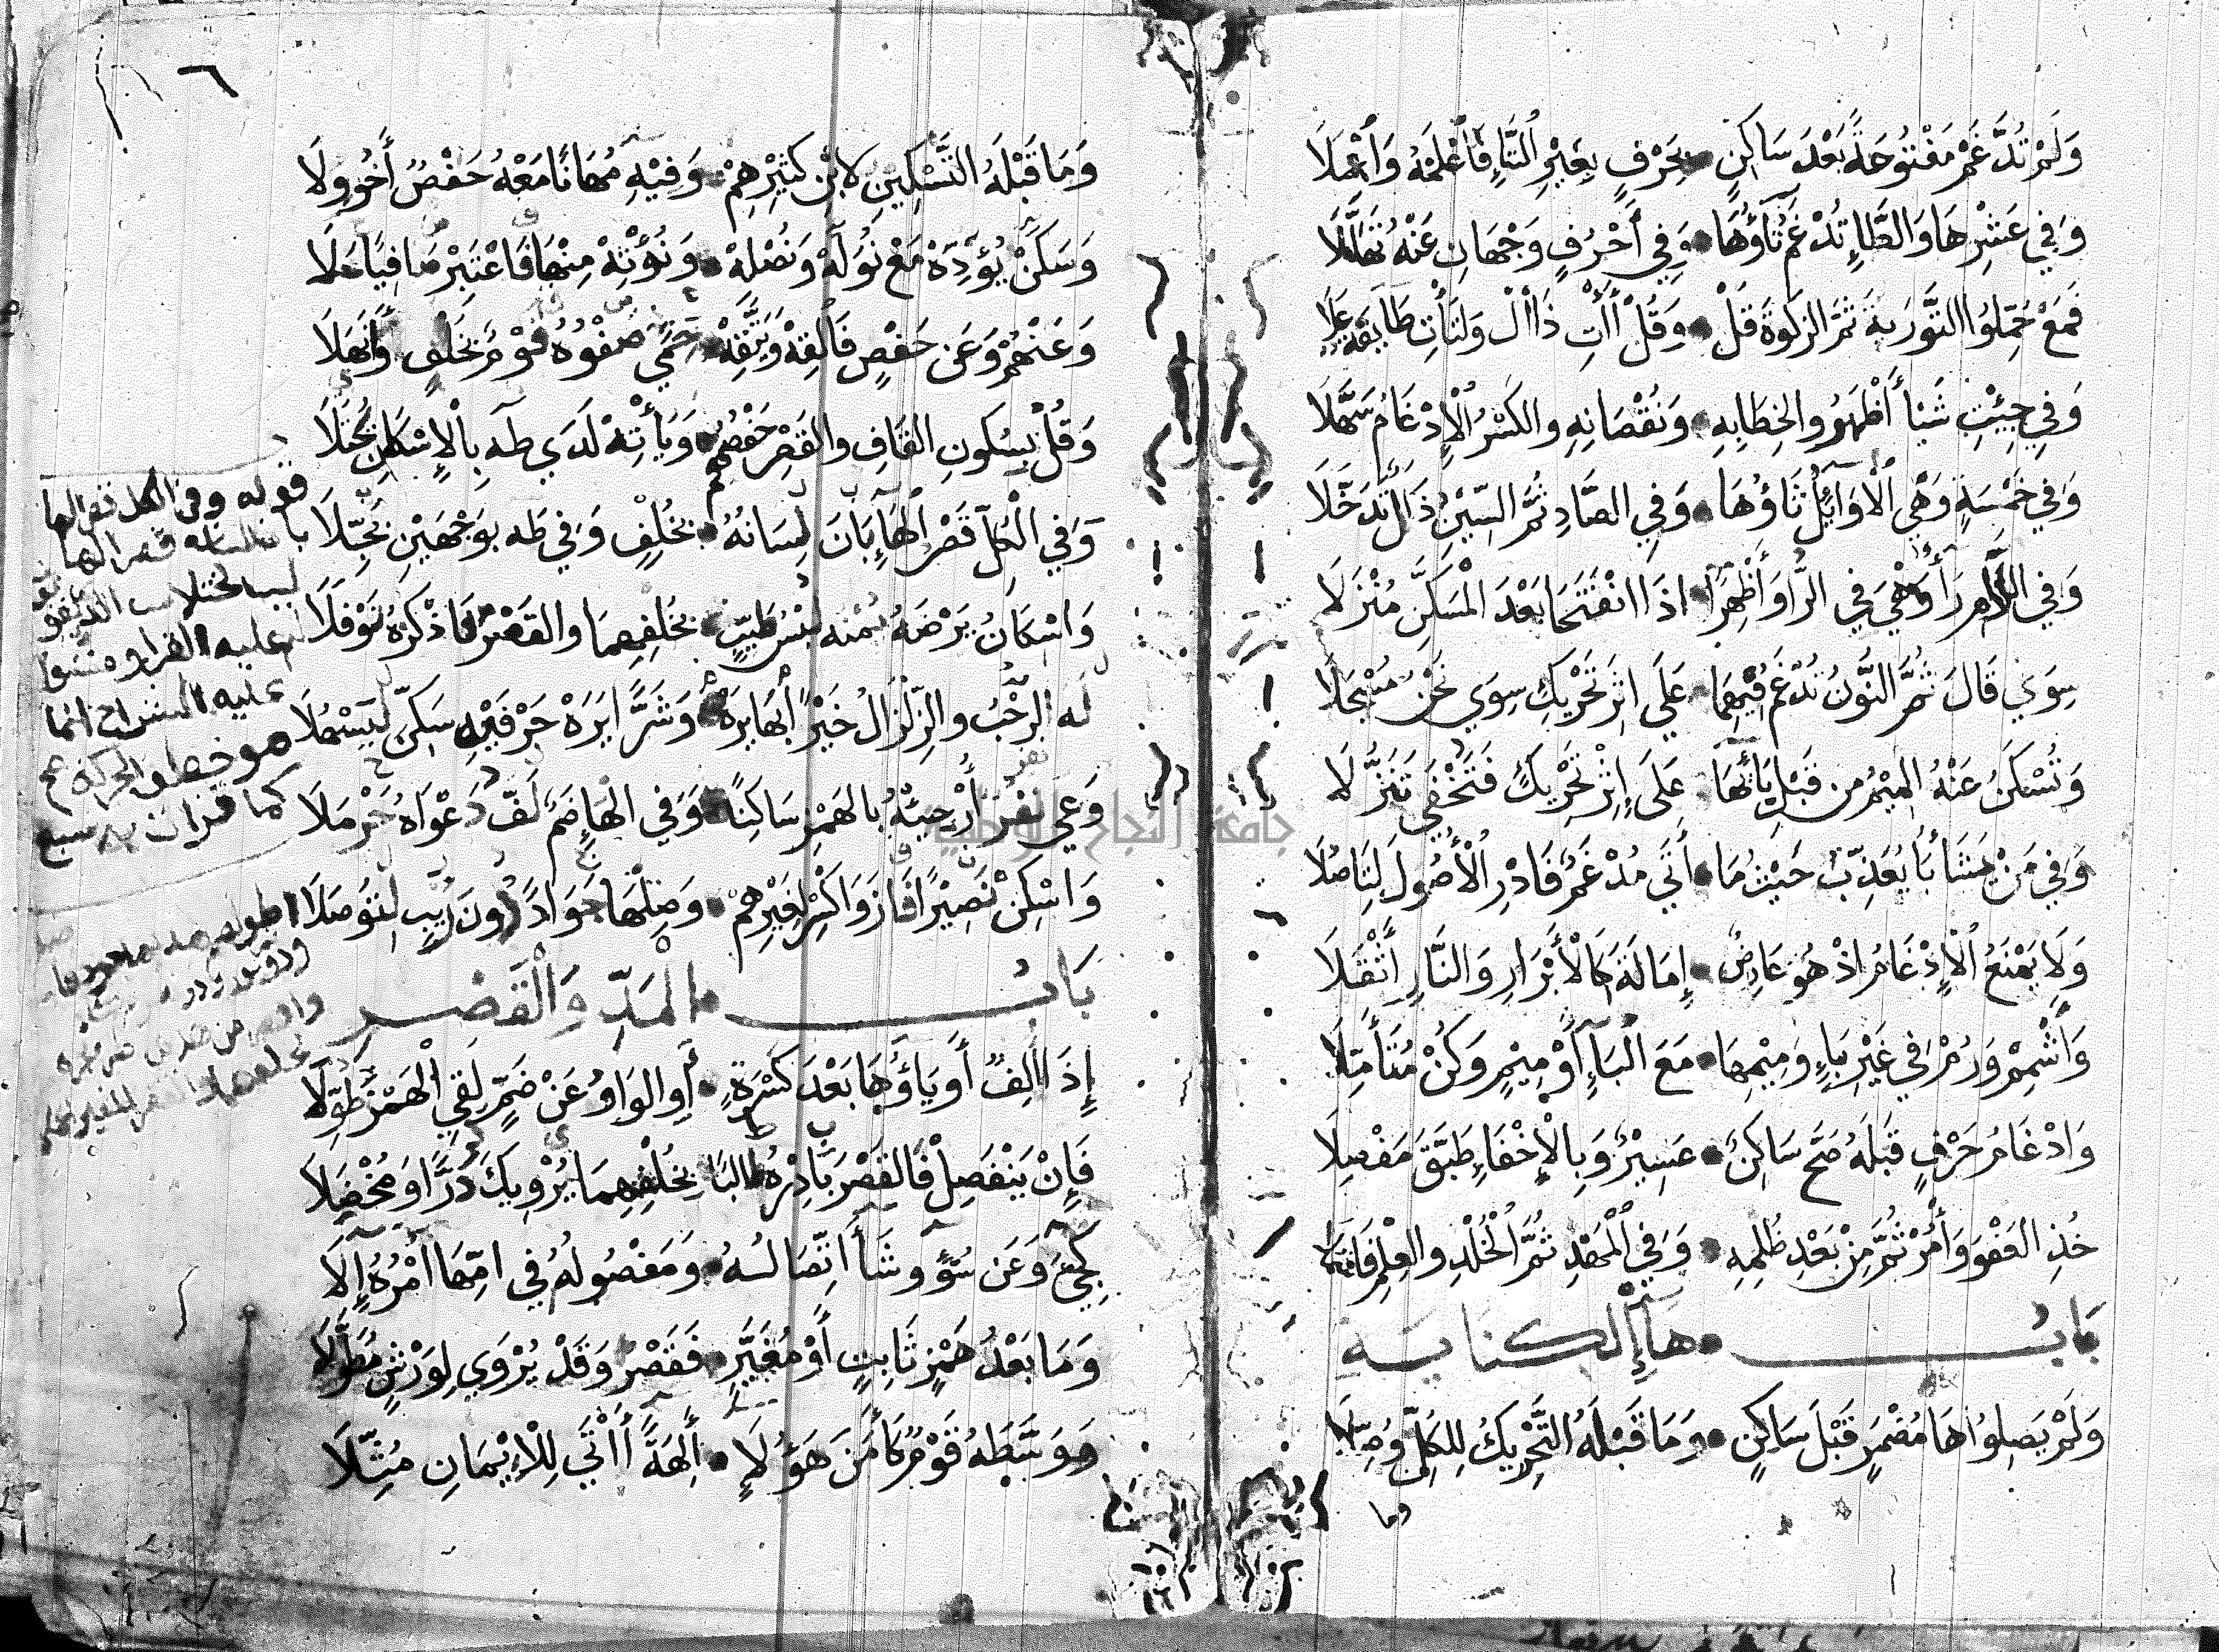 وَلَمْ تُدَّغَمْ مَفْتُوحَةً بَعْدَ سَاكِنٍ • بِحَرْفٍ بِغَيْرِ التَّاءِ فَاعْلَمْهُ وَاعْمَلَا
وَفِي عَشْرِهَا وَالطَّاءِ تُدْغَمُ تَاؤُهَا • وَفِي أَحْرُفٍ وَجْهَانِ عَنْهُ تَهَلَّلَا
فَمَعْ حُمِّلُوا التَّوْرَيةَ ثُمَّ الزَّكَوةَ قُلْ • وَقُلْ أٰتِ ذَا الْ وَلْتَأْتِ طَائِفَةٌ عَلَا
وَفِي جِئْتِ شَيْأً أَظْهَرُوا لِخِطَابِهِ • وَنُقْصَانِهِ وَالْكَسْرُ الْإِدْغَامُ سَهَّلَا
وَفِي خَمْسَةٍ وَهْيَ الْأَوَائِلُ ثَاؤُهَا • وَفِي الصَّادِ ثُمَّ السِّيْنِ ذَالٌ تَدَخَّلَا
وَفِي اللَّامِ رَاءٌ وَهْيَ فِي الرَّا وَأُظْهِرَا • اذَا انْفَتَحَا بَعْدَ الْمُسَكَّنِ مُنْزَلَا
سِوَي قَالَ ثُمَّ النُّونُ تُدْغَمُ فِيْهِمَا • عَلَى اثْرِ تَحْرِيْكٍ سِوَي نَحْنُ مُسْجَلَا
وَتُسْكَنُ عَنْهُ الْمِيْمُ مِنْ قَبْلِ بَائِهَا • عَلَى إِثْرِ تَحْرِيْكٍ فَتَخْفَى تَنَزُّلَا
وَفِي مَنْ يَشَاءُ بَا يُعَذِّبُ حَيْثُ مَا • أَتَى مُدْغَمٌ فَادْرِ الْأُصُولَ لِتَاصُلَا
وَلَا يَمْنَعُ الْإِدْغَامُ اذْ هُوَ عَارِضٌ • إِمَالَةَ كَالْأَبْرَارِ وَالنَّارِ أَثْقَلَا
وَأَشْمِمْ وَرُمْ فِي غَيْرِ بَاءٍ وَمِيْمِهَا • مَعَ الْبَاءِ أَوْ مِيْمٍ وَكُنْ مُتَأَمِّلَا
وَادْغَامُ حَرْفٍ قَبْلَهُ صَحَّ سَاكِنٌ • عَسِيْرٌ وَبِالْإِخْفَاءِ طَبَّقَ مَفْصِلَا
خُذِ الْعَفْوَ وَأْمُرْ ثُمَّ مِنْ بَعْدِ ظُلْمِهِ • وَفِي الْمَهْدِ ثُمَّ الْخُلْدِ وَالْعِلْمِ فَاشْمُلَا
بَابُ • هَاءِ الْكِنَايَةِ
وَلَمْ يَصِلُوا هَا مُضْمَرٍ قَبْلَ سَاكِنٍ • وَمَا قَبْلَهُ التَّحْرِيْكُ لِلْكُلِّ وُصِّلَا
وما
٦
وَمَا قَبْلَهُ التَّسْكِينُ لِابْنِ كَثِيْرِهِمْ • وَفِيْهِ مُهَانًا مَعْهُ حَفْصٌ أَخُو وِلَا
وَسَكِّنْ يُؤَدِّهْ مَعْ نُوَلِّهْ وَنُصْلِهْ • وَنُؤْتِهْ مِنْهَا فَاعْتَبِرْ صَافِيًا حَلَا
وَعَنْهُمْ وَعَنْ حَفْصٍ فَأَلْقِهْ وَيَتَّقِهْ • حَمَى صَفْوَهُ قَوْمٌ بِخُلْفٍ وَأَنْهَلَا
وَقُلْ بِسُكُونِ الْقَافِ وَالْقَصْرِ حَفْصُهُمْ • وَيَأْتِهْ لَدَي طَهَ بِالْإِسْكَانِ يُجْتَلَا
وَفِي الْكُلِّ قَصْرُ الْهَاءِ بَانَ لِسَانُهُ • بِخُلْفٍ وَفِي طَهَ بِوَجْهَيْنِ بُجِّلَا
وَاسْكَانُ يَرْضَهُ يُمْنُهُ لُبْسُ طَيِّبٍ • بِخُلْفِهِمَا وَالْقَصْرُ فَاذْكُرْهُ نَوْفَلَا
لَهُ الرَّحْبُ وَالزِّلْزَالُ خَيْرًا أَيَرَهْ بِهَا • وَشَرًّا يَرَهْ حَرْفَيْهِ سَكِّنْ لِيَسْهُلَا
وَعَى نَفَرٌ أَرْجِئْهُ بِالْهَمْزِ سَاكِنًا • وَفِي الْهَاءِ ضَمٌّ لَفَّ دَعْوَاهُ حَرْمَلَا
وَاسْكِنْ نَصِيْرًا فَازَ وَاكْسِرْ لِغَيْرِهِمْ • وَصِلْهَا جَوَادًا دُونَ رَيْبٍ لِتُوصَلَا
بَابُ • الْمَدِّ وَالْقَصْرِ
إِذَا أَلِفٌ أَوْ يَاؤُهَا بَعْدَ كَسْرَةٍ • أَوِ الْوَاوُ عَنْ ضَمٍّ لَقِي الْهَمْزَ طُوِّلَا
فَإِنْ يَنْفَصِلْ فَالْقَصْرَ بَادِرْهُ طَالِبًا • بِخُلْفِهِمَا يُرْوِيْكَ دَرًّا وَمُخْضَلَا
كَجِيءَ وَعَنْ سُوءٍ وَشَاءَ اتِّصَالُهُ • وَمَفْصُولُهُ فِي امِّهَا امْرُهُ إِلَى
وَمَا بَعْدَ هَمْزٍ ثَابِتٍ أَوْ مُغَيَّرٍ • فَقَصْرٌ وَقَدْ يُرْوَي لِوَرْشٍ مُطَوَّلَا
وَوَسَّطَهُ قَوْمٌ كَأٰمَنَ هَؤُلَاءِ • أٰلِهَةً أٰتَى لِلْإِيْمَانِ مُثِّلَا
قوله وفي الكل قصر الها
عليه الشراح انما
هو خطف الحركة
كما قرات به
جامعة النجاح الوطنية